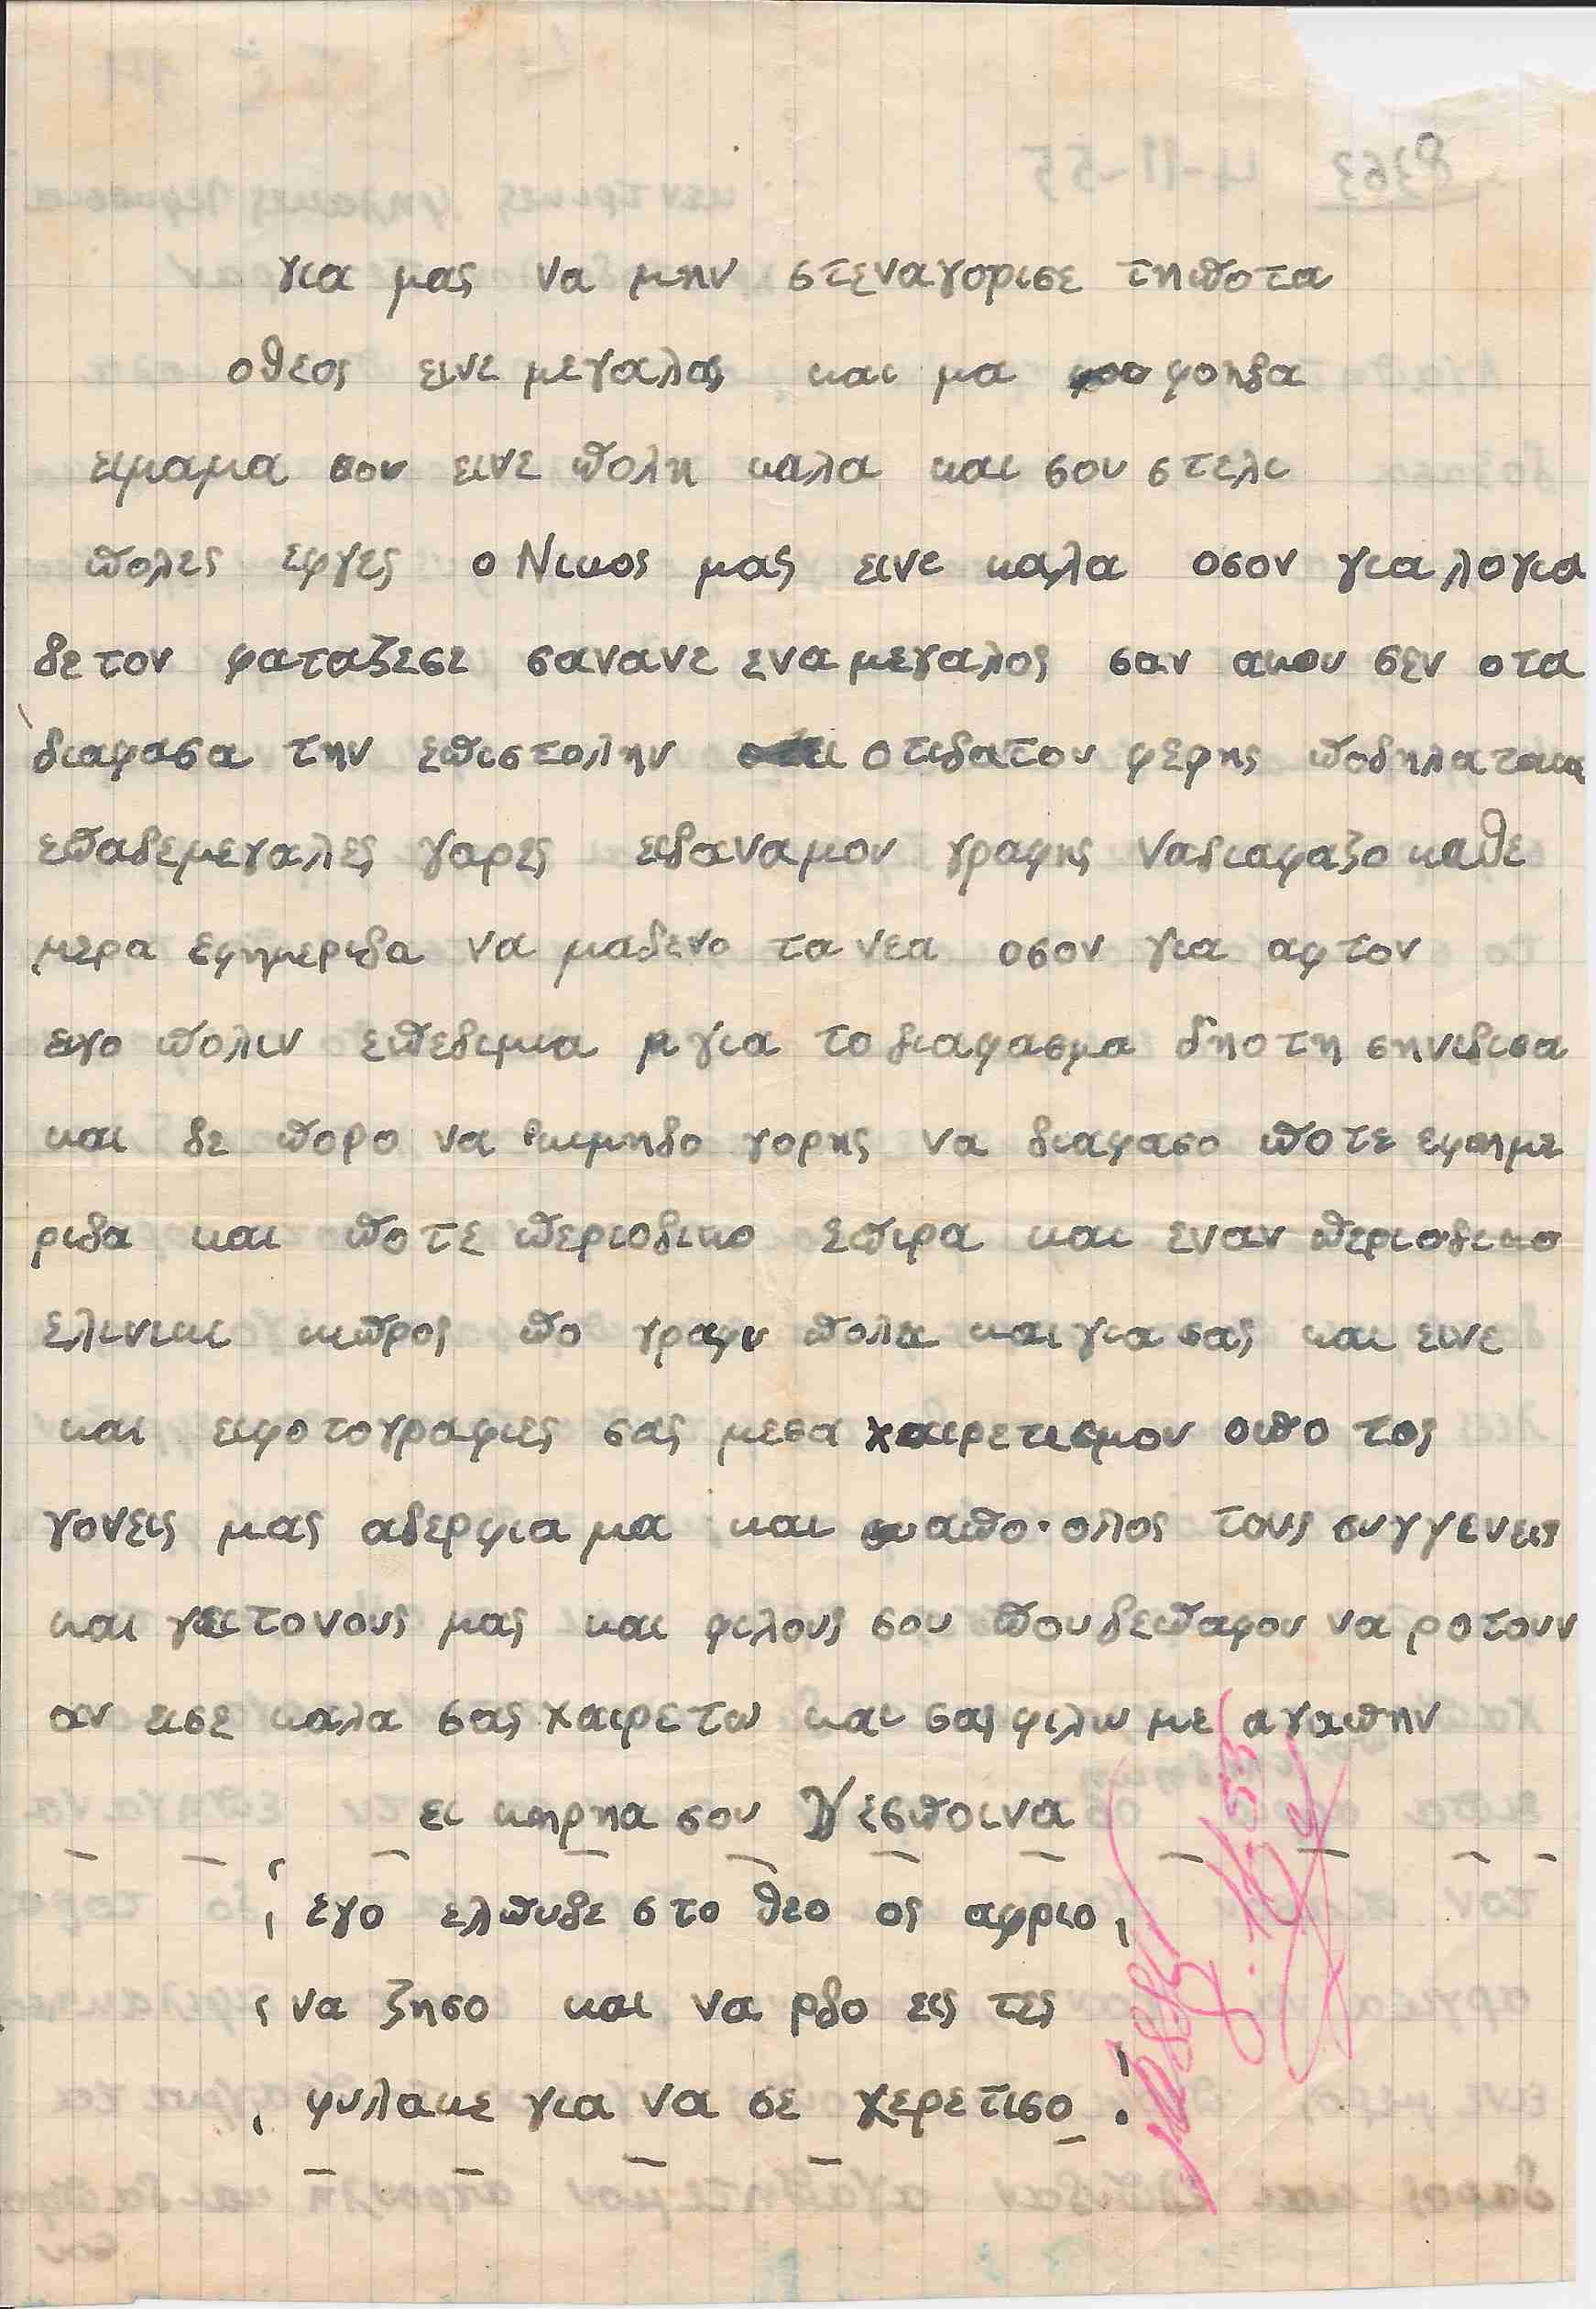 για μας να μην στεναγορισε τηποτα
οθεος εινε μεγαλος και μα φοηδα
ειμαμα σου εινε πολη καλα και σου στελι
πολες εφγες ο Νικος μας εινε καλα οσον για λογια
δε τον φαταζεσε σανανε ενα μεγαλος σαν ακου σεν οτα
διαφασα την επιστολην οτιδατου φερης ποδηλατακι
επαδεμεγαλες γαρες ειδαναμου γραφης ναδιαφαζο καθε
μερα εφημεριδα να μαδενο τα νεα οσον για αφτον
εγο πολιν επεδιμια για το διαφασμα δηοτη σηνιδισα
και δε πορο να κιμηδο γορης να διαφασο ποτε εφημε
ριδα και ποτε περιοδικο επιρα και εναν περιοδικο
ελινικι κιπρος πο γραφι πολα και για σας και εινε
και ειφοτογραφιες σας μεσα χαιρετισμον απο τος
γονεις μας αδερφια μα και απο ολος τους συγγενεις
και γειτονους μας και φιλους σου που δεπαφου να ροτουν
αν εισε καλα σας χαιρετω και σας φιλω με αγαπην
ει κηρηα σου Δεσποινα
εγο ελπυδε στο θεο ος αφριο
να ζησο και να ρδο εις τες
φυλακε για να σε χερετισο